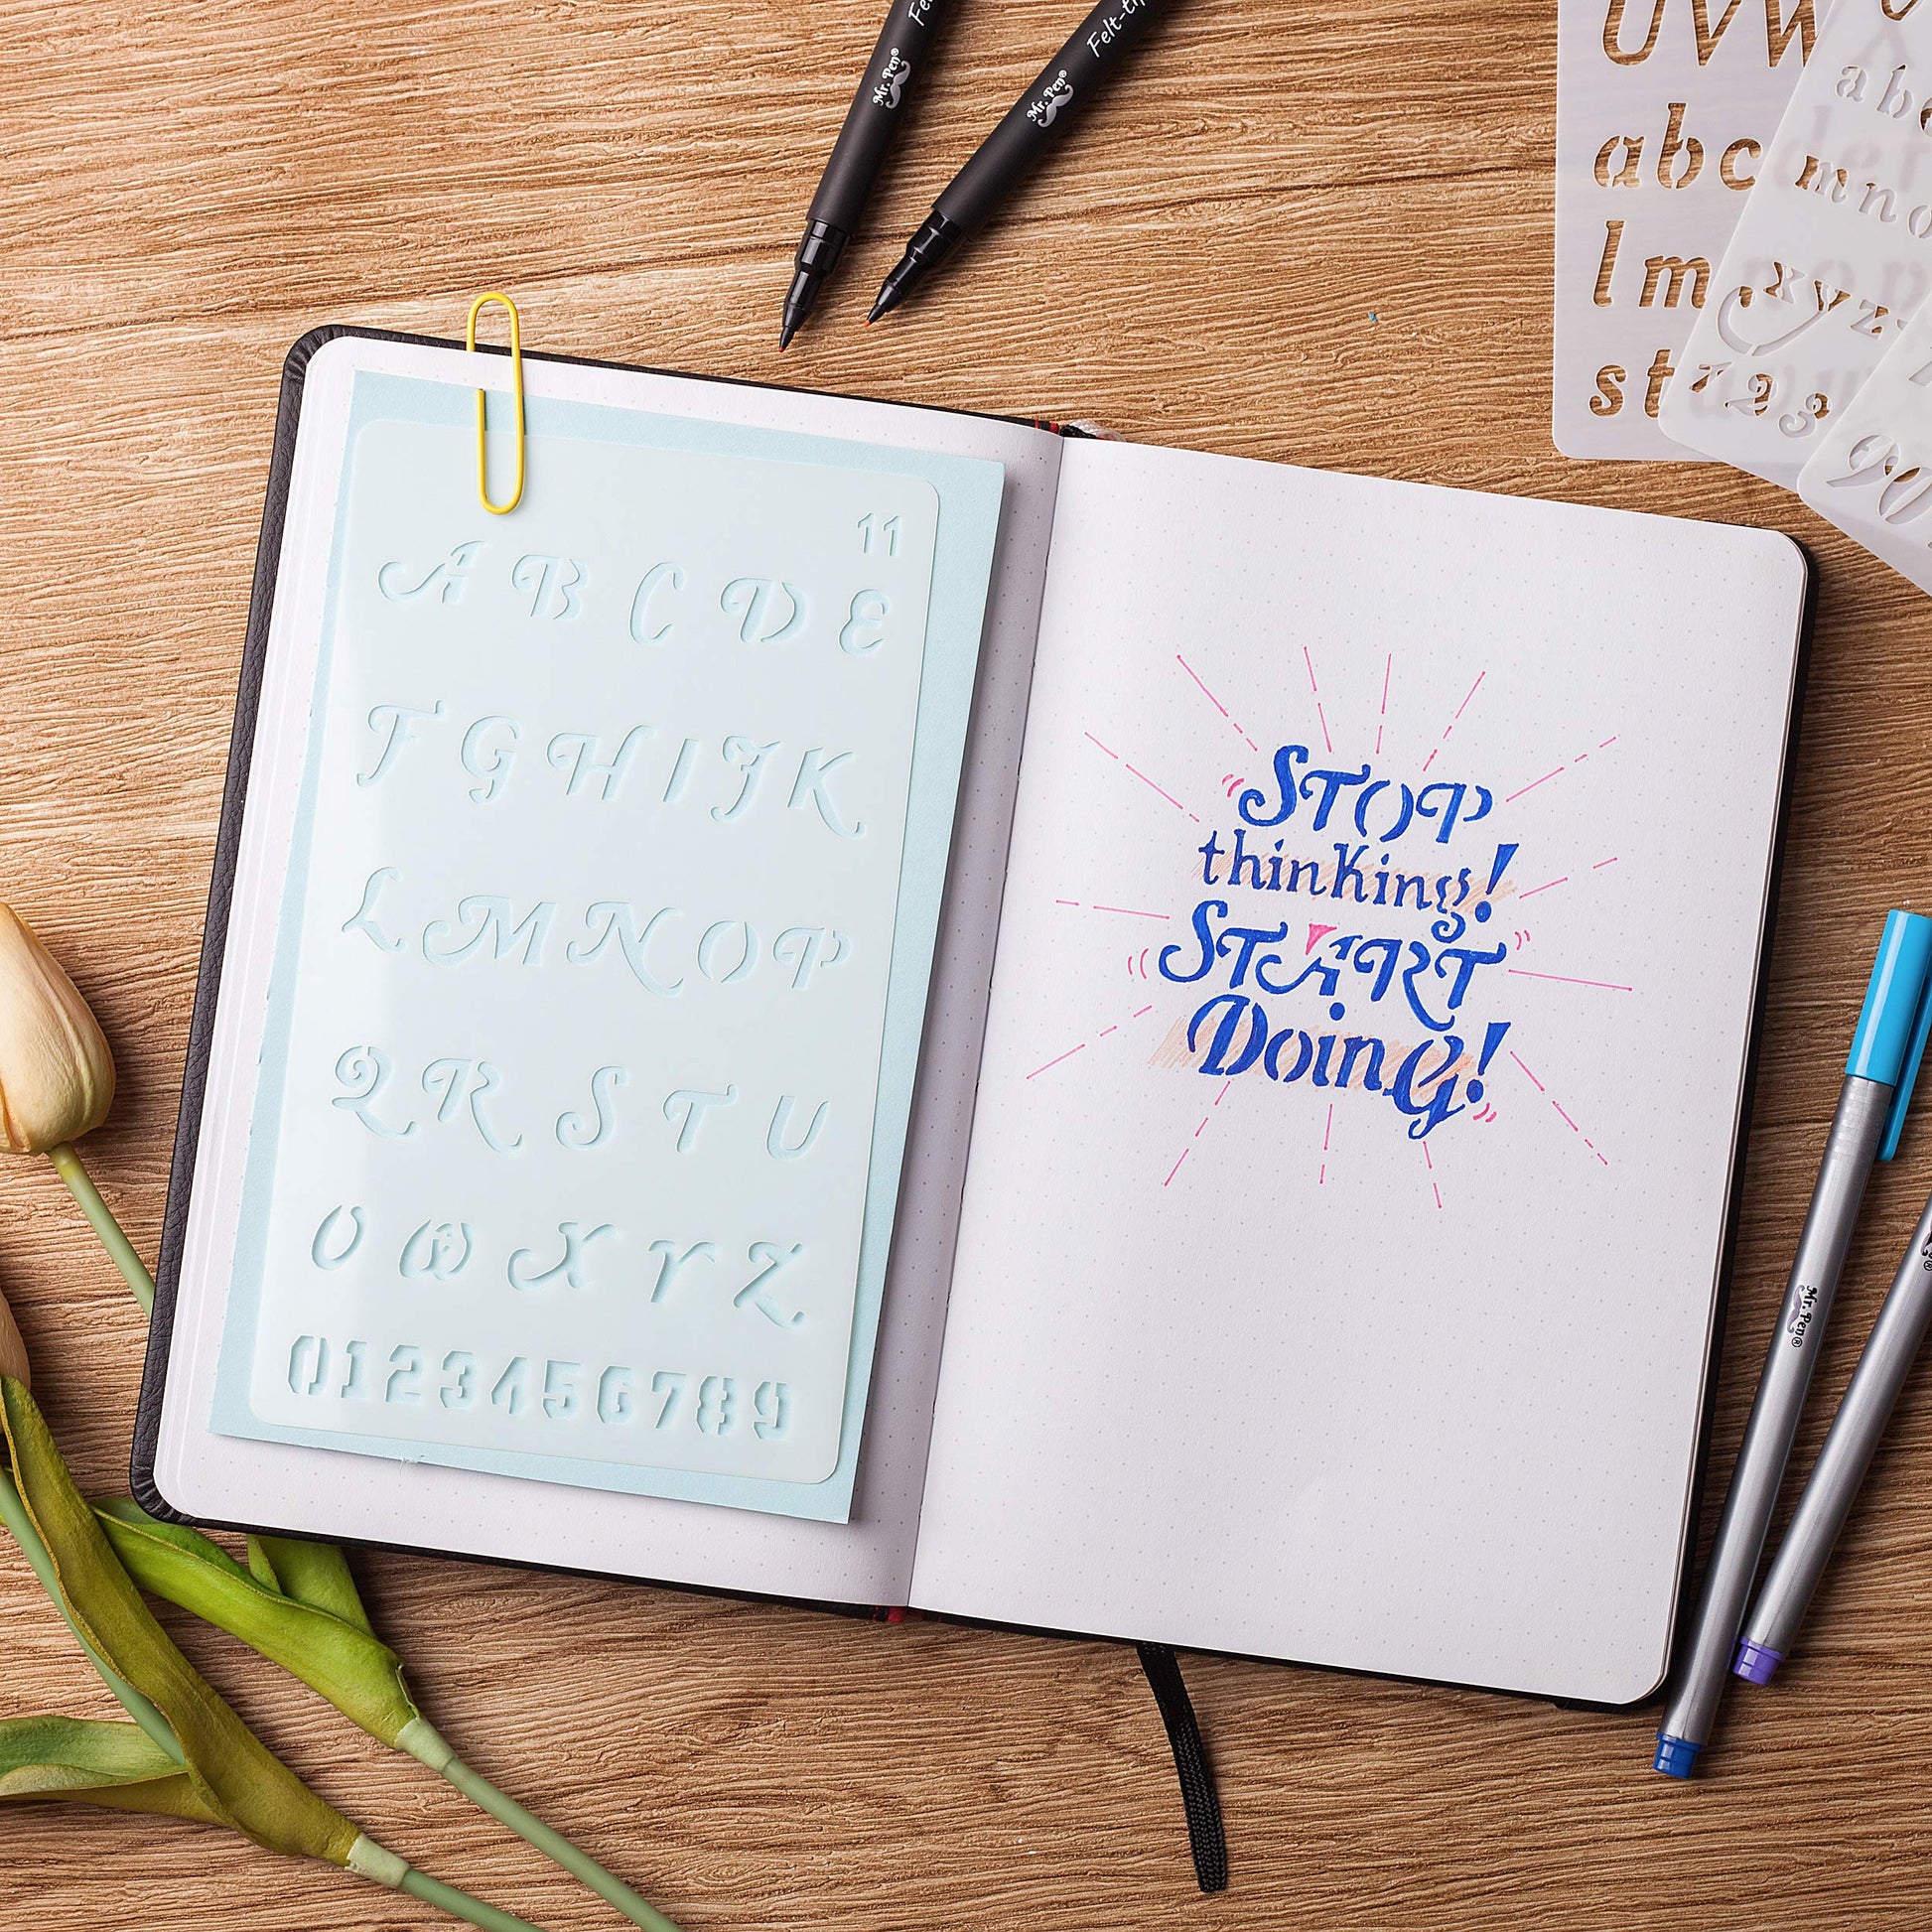 Mr. Pen®
Mr. Pen®
Felt-ti
UVW
abc
lm
st
abc
mno
xyz
123
90
11
A B C D E
F G H I J K
L M N O P
Q R S T U
O W X Y Z
0123456789
STOP
thinking!
START
DoinG!
Mr. Pen®